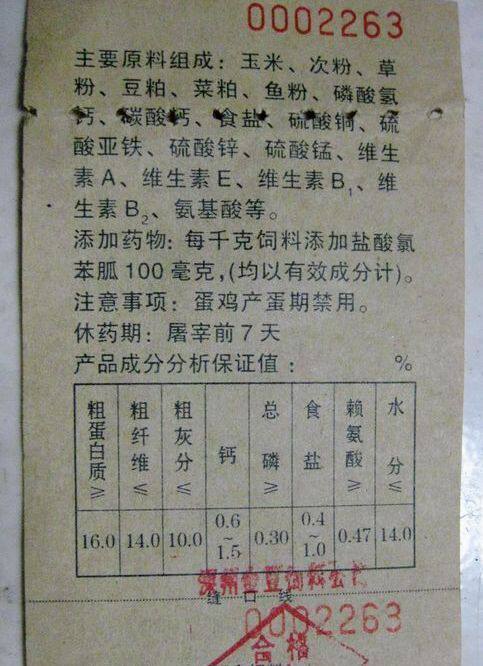 0002263
主要原料组成：玉米、次粉、草
粉、豆粕、菜粕、鱼粉、磷酸氢
钙、碳酸钙、食盐、硫酸铜、硫
酸亚铁、硫酸锌、硫酸锰、维生
素A、维生素E、维生素B₁、维
生素B₂、氨基酸等。
添加药物：每千克饲料添加盐酸氯
苯胍100毫克，(均以有效成分计)。
注意事项：蛋鸡产蛋期禁用。
休药期：屠宰前7天
产品成分分析保证值： %
粗蛋白质≥ 粗纤维≤ 粗灰分≤ 钙 总磷≥ 食盐 赖氨酸≥ 水分≤
16.0 14.0 10.0 0.6~1.5 0.30 0.4~1.0 0.47 14.0
缝口线
0002263
合格